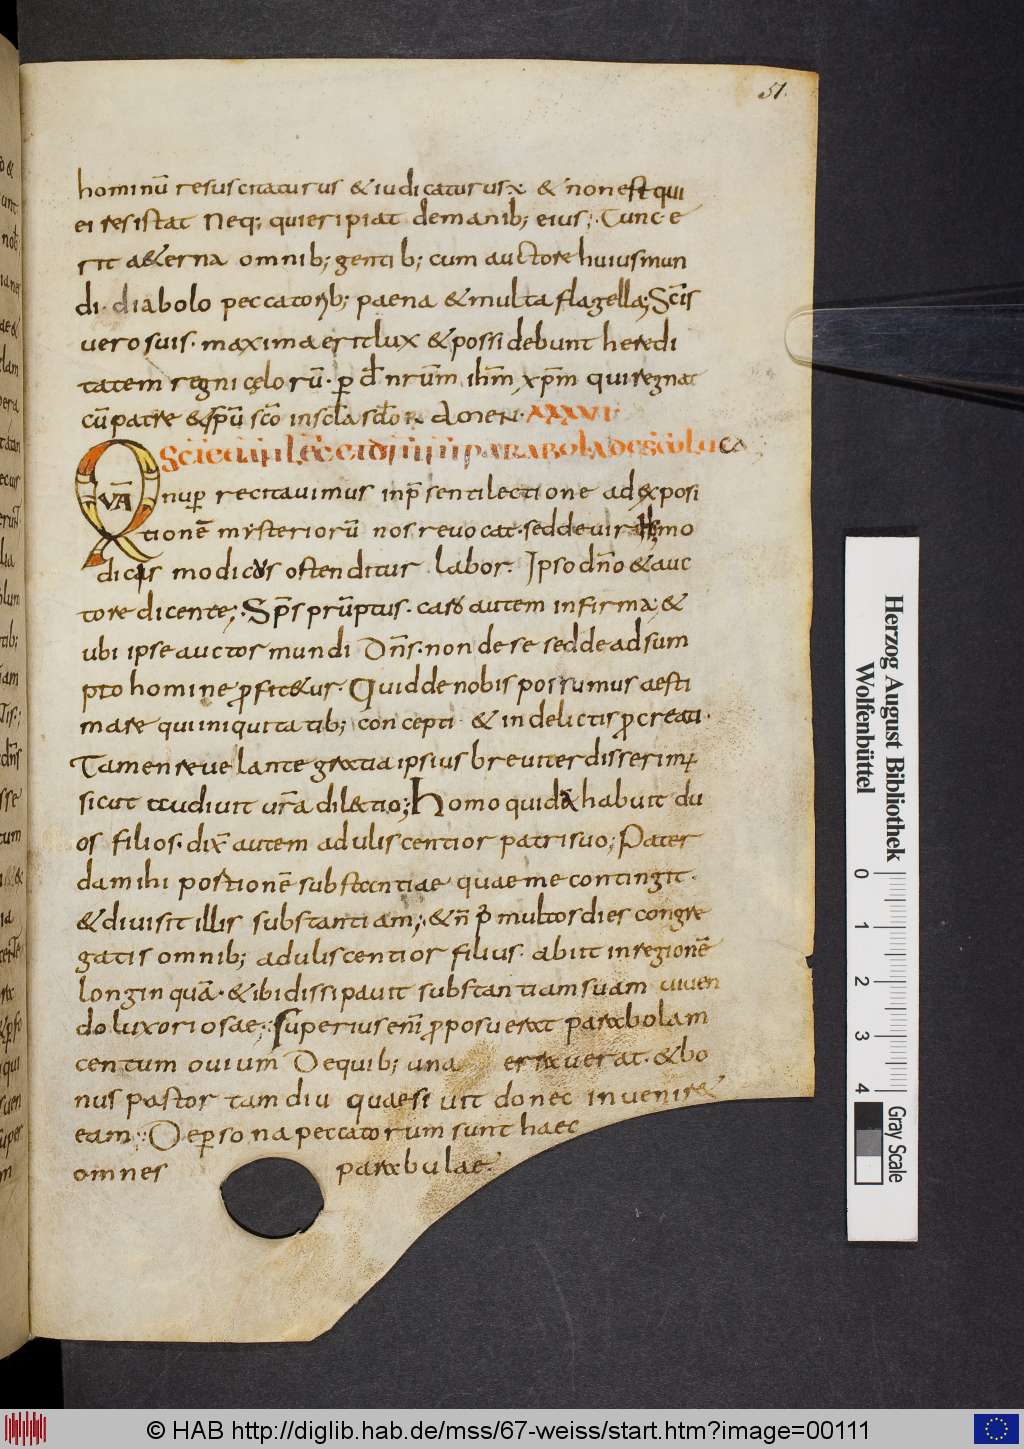 51.
hominū resuscitaturus & iudicaturus & non est qui
ei resistat Neq; qui eripiat de manib; eius; Tunc e
rit a&erna omnib; gentib; cum auctore huius mun
di diabolo peccatorib; paena & multa flagella; Scīs
vero suis. maxima erit lux & possidebunt heredi
tatem regni cęlorū. ꝑ dn̄m nr̄m ihm̄ xp̄m qui regnat
cū patre & sp̄u sc̄o in scl̄a scl̄oꝝ Amen. XXXVI
PARABOLA LUCA
QVĀ nuꝑ recitavimus in p̄senti lectione ad exposi
tionē mysteriorū nos revocat. sed de viribus mo
dicis modicus ostenditur labor. Ipso dn̄o & auc
tore dicente; Sp̄s prūptus. caro autem infirma; &
ubi ipse auctor mundi Dn̄s. non de se sed de adsum
pto homine ꝓfitetur. Quid de nobis possumus aesti
mare qui iniquitatib; concepti & in delictis ꝓcreati.
Tamen revelante gratia ipsius breviter disserim;
sicut audivit vr̄a dilectio; Homo quidā habuit du
os filios. dix̄ autem aduliscentior patri suo; Pater
da mihi portionē substantiae quae me contingit.
& divisit illis substantiam; & n̄ p̄ multos dies congre
gatis omnib; aduliscentior filius. abiit in regionē
longinquā. & ibi dissipavit substantiam suam viven
do luxoriosae; superius enī ꝓposuerat parabolam
centum ovium De quib; una erraverat. & bo
nus pastor tam diu quaesiuit donec invenir&
eam; De ꝑsona peccatorum sunt haec
omnes parabulae.
Herzog August Bibliothek
Wolfenbüttel
0 1 2 3 4
Gray Scale
© HAB http://diglib.hab.de/mss/67-weiss/start.htm?image=00111